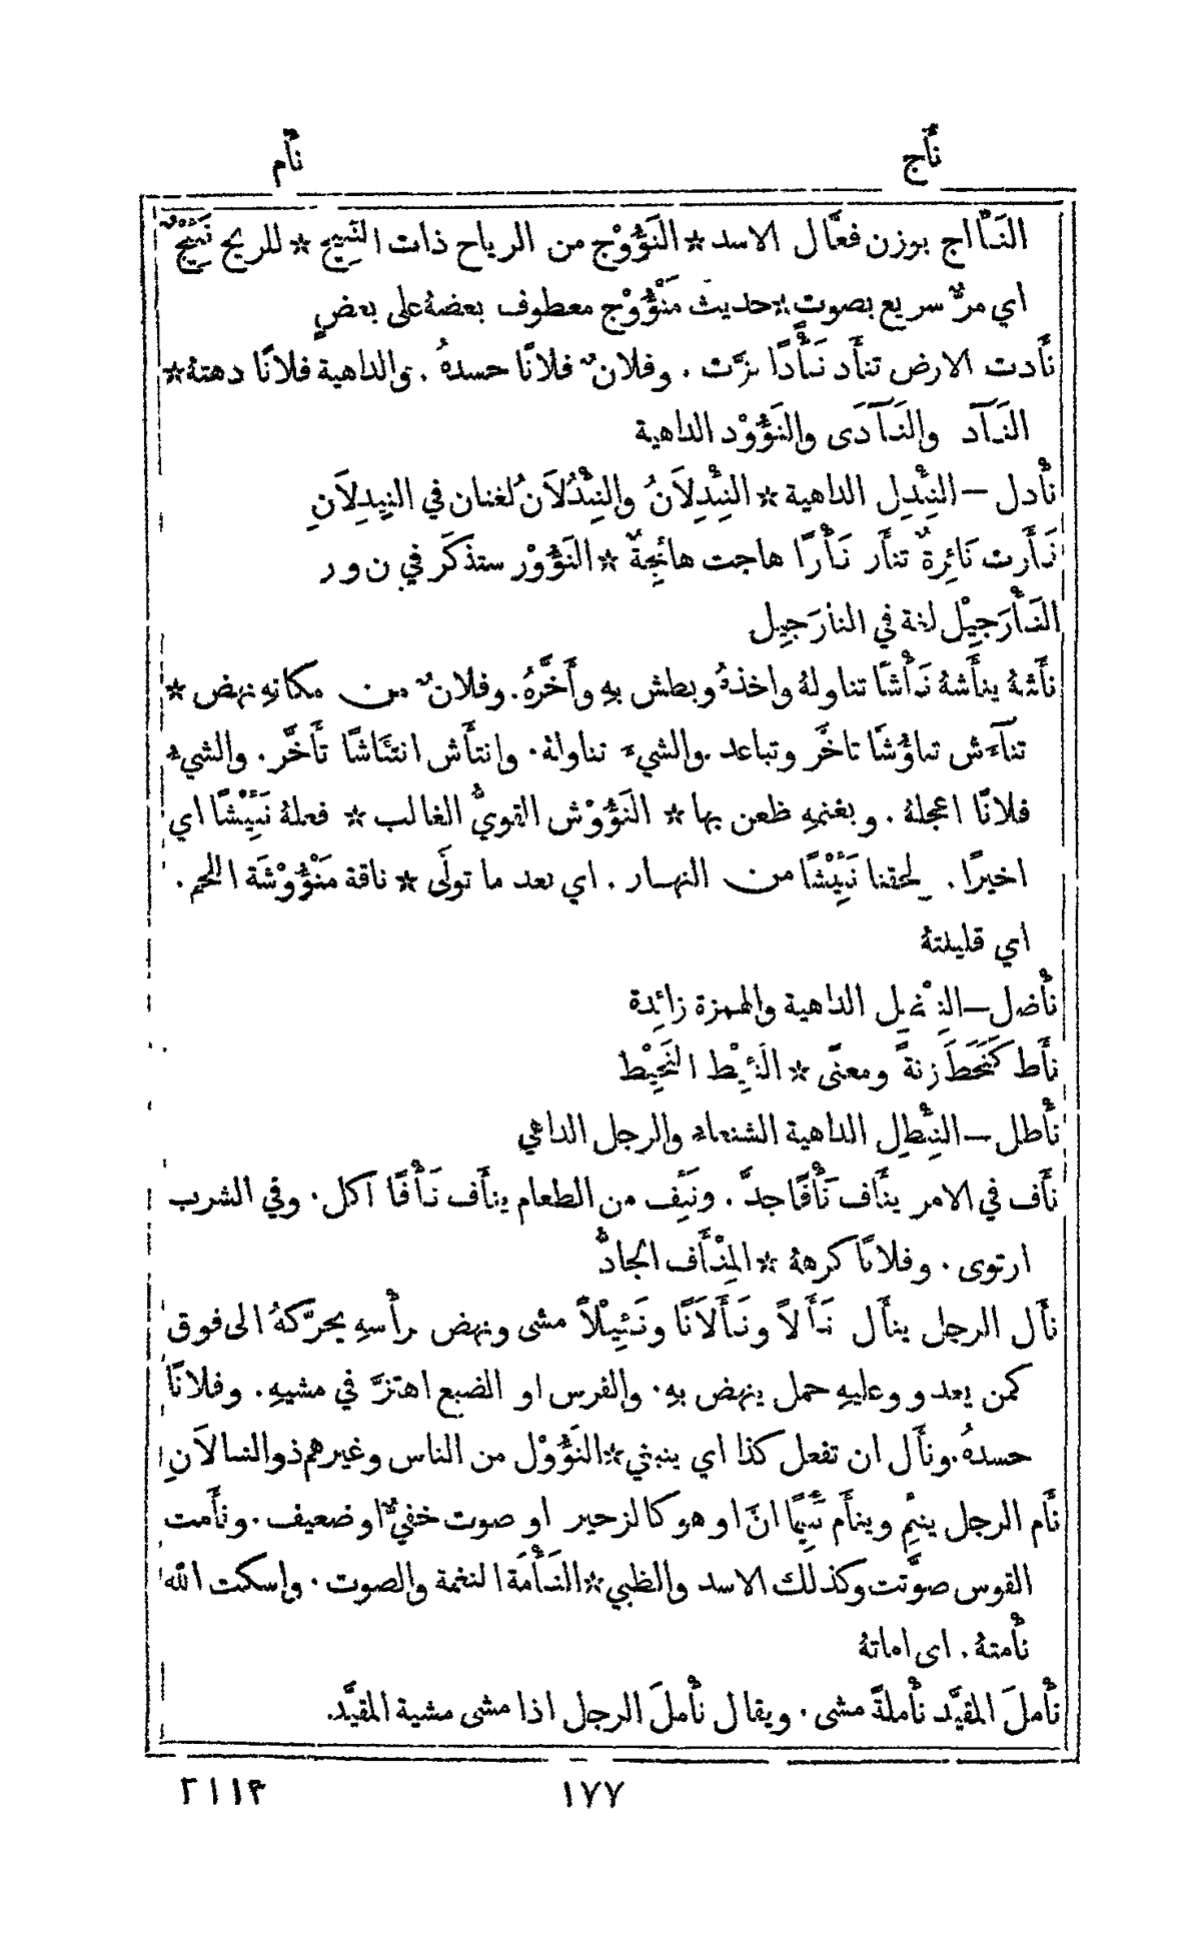 نأج
نأم
النَّأّاج بوزن فعّال الاسد * النَؤُوْج من الرياح ذات النئيج * للريح نَئِيْجٌ
اي مرٌّ سريع بصوتٍ * حديث مَنْؤُوْج معطوف بعضهُ على بعضٍ
نأَدت الارض تنأَد نَأْدًا نزَّت . وفلانٌ فلانًا حسدهُ . والداهية فلانًا دهتهُ *
النَآد والنَآدَى والنَؤُوْد الداهية
نأْدل – النِئْدِل الداهية * النِئْدِلاَنُ والنِئْدُلاَنُ لغتان في النيدِلاَنِ
نَأَرت نَائِرةٌ تنأَر نَأْرًا هاجت هائجةٌ * النَؤُوْر ستذكَر في ن و ر
النَأْرَجِيْل لغة في النارَجِيل
نأَشهُ ينأَشهُ نَأْشًا تناولهُ واخذهُ وبطش بهِ وأَخَّرهُ . وفلانٌ من مكانهِ نهض *
تنآءش تناؤشًا تاخَّر وتباعد . والشيءَ تناولهُ . وانتأَش انتئاشًا تأَخَّر . والشيءُ
فلانًا اعجلهُ . وبغنمهِ ظعن بها * النَؤُوْش القويُّ الغالب * فعلهُ نَئِيْشًا اي
اخيرًا . لحقنا نَئِيْشًا من النهار . اي بعد ما تولَّى * ناقة مَنْؤُوْشَة اللحم .
اي قليلتهُ
نأْضل – النِئْضِل الداهية والهمزة زائِدة
نأَط كَنَحَطَ زنةً ومعنًى * النَئِيْط النَحِيْط
نأْطل – النِئْطِل الداهية الشنعاء والرجل الداهي
نأَف في الامر ينأَف نَأْفًا جدَّ . ونَئِف من الطعام ينأَف نَأْفًا آكل . وفي الشرب
ارتوى . وفلانًا كرههُ * المِنْأَف الجادُّ
نأَل الرجل ينأَل نَأْلاً ونَأَلاَنًا ونَئِيْلاً مشى ونهض برأْسهِ يحرّكهُ الى فوق
كمن يعدو وعليهِ حمل ينهض بهِ . والفرس او الضبع اهتزَّ في مشيهِ . وفلانًا
حسدهُ . ونأَل ان تفعل كذا اي ينبغي * النَؤُوْل من الناس وغيرهم ذو النالاَنِ
نأَم الرجل ينئِم وينأَم نَئِيْمًا انَّ او هو كالزحير او صوت خفيٌّ او ضعيف . ونأَمت
القوس صوَّتت وكذلك الاسد والظبي * النَأْمَة النغمة والصوت . واسكت الله
نأْمتهُ . اي اماتهُ
نأْملَ المقيَّد نأْملةً مشى . ويقال نأْملَ الرجل اذا مشى مشية المقيَّد.
١٧٧
٢١١٤